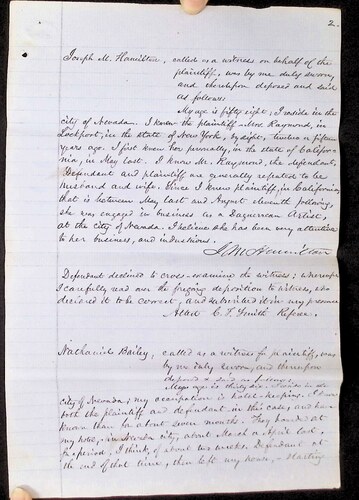 2.
Joseph M. Hamilton, called as a witness on behalf of the
plaintiff, was by me duly sworn,
and thereupon deposed and said
as follows:
My age is fifty eight; I reside in the
city of Nevada. I knew the plaintiff Mrs Raymond, in
Lockport, in the state of New York, by sight, twelve or fifteen
years ago. I first knew her personally, in the state of Califor-
nia, in May last. I know Mr. Raymond, the defendant.
Defendant and plaintiff are generally reputed to be
husband and wife. Since I knew plaintiff, in California,
that is between May last and August eleventh following,
she was engaged in business as a Daguerrean Artist,
at the city of Nevada. I believe she has been very attentive
to her business, and industrious.
J. M. Hamilton
Defendant declined to cross-examine the witness; whereupon
I carefully read over the foregoing deposition to witness, who
declared it to be correct, and subscribed it in my presence
Attest C. F. Smith Referee.
Nathaniel Bailey, called as a witness for plaintiff, was
by me duly sworn, and thereupon
deposed & said as follows,
My age is thirty six. I reside in the
city of Nevada; my occupation is hotel-keeping. I know
both the plaintiff and defendant in this case, and have
known them for about seven months. They boarded at
my hotel, in Nevada city, about March or April last,
for a period, I think, of about two weeks. Defendant at
the end of that time, then left my house, - starting